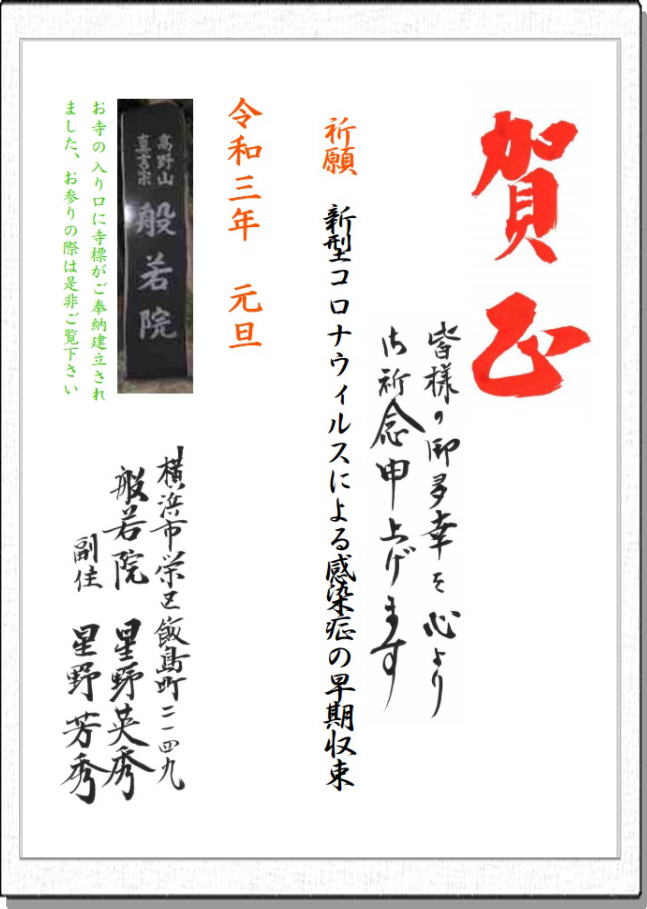 賀正
皆様の御多幸を心より
御祈念申上げます
祈願 新型コロナウィルスによる感染症の早期収束
令和三年 元旦
高野山
真言宗
般若院
お寺の入り口に寺標がご奉納建立され
ました、お参りの際は是非ご覧下さい
横浜市栄区飯島町二一四九
般若院 星野英秀
副住 星野芳秀